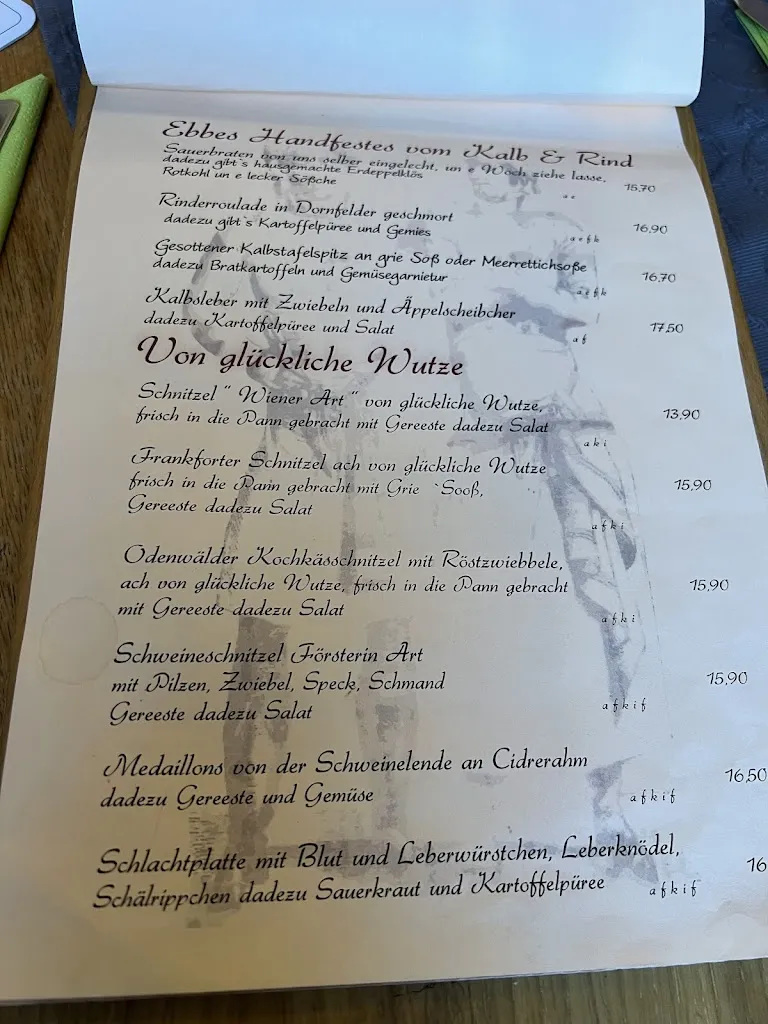 Ebbes Handfestes vom Kalb & Rind
Sauerbraten von uns selber eingelecht, un e Woch ziehe lasse,
dadezu gibt`s hausgemachte Erdeppelklös
Rotkohl un e lecker Sößche
15,70
Rinderroulade in Dornfelder geschmort
dadezu gibt`s Kartoffelpüree und Gemies
16,90
Gesottener Kalbstafelspitz an grie Soß oder Meerrettichsoße
dadezu Bratkartoffeln und Gemüsegarnietur
16,70
Kalbsleber mit Zwiebeln und Äppelscheibcher
dadezu Kartoffelpüree und Salat
a f
17,50
Von glückliche Wutze
Schnitzel " Wiener Art " von glückliche Wutze,
frisch in die Pann gebracht mit Gereeste dadezu Salat
a k i
13,90
Frankforter Schnitzel ach von glückliche Wutze
frisch in die Pann gebracht mit Grie `Sooß,
Gereeste dadezu Salat
a f k i
15,90
Odenwälder Kochkässchnitzel mit Röstzwiebbele,
ach von glückliche Wutze, frisch in die Pann gebracht
mit Gereeste dadezu Salat
a f k i
15,90
Schweineschnitzel Försterin Art
mit Pilzen, Zwiebel, Speck, Schmand
Gereeste dadezu Salat
a f k i f
15,90
Medaillons von der Schweinelende an Cidrerahm
dadezu Gereeste und Gemüse
a f k i f
16,50
Schlachtplatte mit Blut und Leberwürstchen, Leberknödel,
Schälrippchen dadezu Sauerkraut und Kartoffelpüree
a f k i f
16